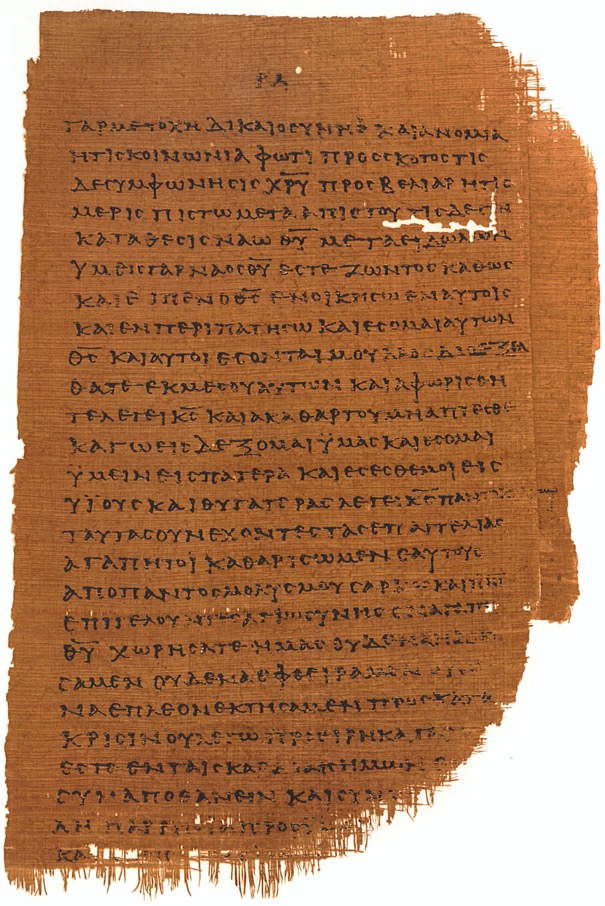 ΡΛ
ΓΑΡΜΕΤΟΧΗ ΔΙΚΑΙΟϹΥΝΗ ΚΑΙΑΝΟΜΙΑ
ΗΤΙϹΚΟΙΝΩΝΙΑ ΦΩΤΙ ΠΡΟϹϹΚΟΤΟϹΤΙϹ
ΔΕϹΥΜΦΩΝΗϹΙϹ Χ̅Ρ̅Υ̅ ΠΡΟϹΒΕΛΙΑΡΗΤΙϹ
ΜΕΡΙϹ ΠΙϹΤΩΜΕΤΑΑΠΙϹΤΟΥΤΙϹΔΕϹΥΝ
ΚΑΤΑΘΕϹΙϹΝΑΩ Θ̅Υ̅ ΜΕΤΑΕΙΔΩΛΩΝ
ΫΜΕΙϹΓΑΡΝΑΟϹΘ̅Υ̅ ΕϹΤΕ ΖΩΝΤΟϹΚΑΘΩϹ
ΚΑΙΕΙΠΕΝΟΘ̅Ϲ̅ ΕΝΟΙΚΗϹΩΕΝΑΥΤΟΙϹ
ΚΑΙΕΝΠΕΡΙΠΑΤΗϹΩ ΚΑΙΕϹΟΜΑΙΑΥΤΩΝ
Θ̅Ϲ̅ ΚΑΙΑΥΤΟΙΕϹΟΝΤΑΙΜΟΥΛΑΟϹΔΙΟΕΞΕΛ
ΘΑΤΕ ΕΚΜΕϹΟΥΑΥΤΩΝ ΚΑΙΑΦΩΡΙϹΘΗ
ΤΕΛΕΓΕΙΚ̅Ϲ̅ ΚΑΙΑΚΑΘΑΡΤΟΥΜΗΑΠΤΕϹΘΕ
ΚΑΓΩΕΙϹΔΕΞΟΜΑΙΫΜΑϹΚΑΙΕϹΟΜΑΙ
ΫΜΕΙΝΕΙϹΠΑΤΕΡΑ ΚΑΙΕϹΕϹΘΕΜΟΙΕΙϹ
ΥΪΟΥϹΚΑΙΘΥΓΑΤΕΡΑϹΛΕΓΕΙΚ̅Ϲ̅ΠΑΝΤ
ΤΑΥΤΑϹΟΥΝΕΧΟΝΤΕϹΤΑϹΕΠΑΓΓΕΛΙΑϹ
ΑΓΑΠΗΤΟΙ ΚΑΘΑΡΙϹΩΜΕΝΕΑΥΤΟΥϹ
ΑΠΟΠΑΝΤΟϹΜΟΛΥϹΜΟΥϹΑΡ ΚΑΙΠΝ
ΕΠΙΤΕΛΟΥΝΤΕϹΑΓΙΩϹΥΝΗΝ ΕΝΑΓΑΠΗ
Θ̅Υ̅ ΧΩΡΗϹΑΤΕ ΗΜΑϹ ΟΥΔΕΝΑΗΔΙΚΗ
ϹΑΜΕΝ ΟΥΔΕΝΑΕΦΘΕΙΡΑΜΕΝ ΟΥΔΕ
ΝΑΕΠΛΕΟΝΕΚΤΗϹΑΜΕΝ ΠΡΟϹΚΑΤΑ
ΚΡΙϹΙΝΟΥΛΕΓΩΠΡΟΕΙΡΗΚΑΓΑΡ
ΕϹΤΕ ΕΝΤΑΙϹΚΑΡΔΙΑΙϹΗΜΩΝ
ϹΥΝΑΠΟΘΑΝΕΙΝ ΚΑΙϹΥΝ
ΛΗ ΠΑΡΡΗϹΙΑΠΡΟϹ
ΚΑ